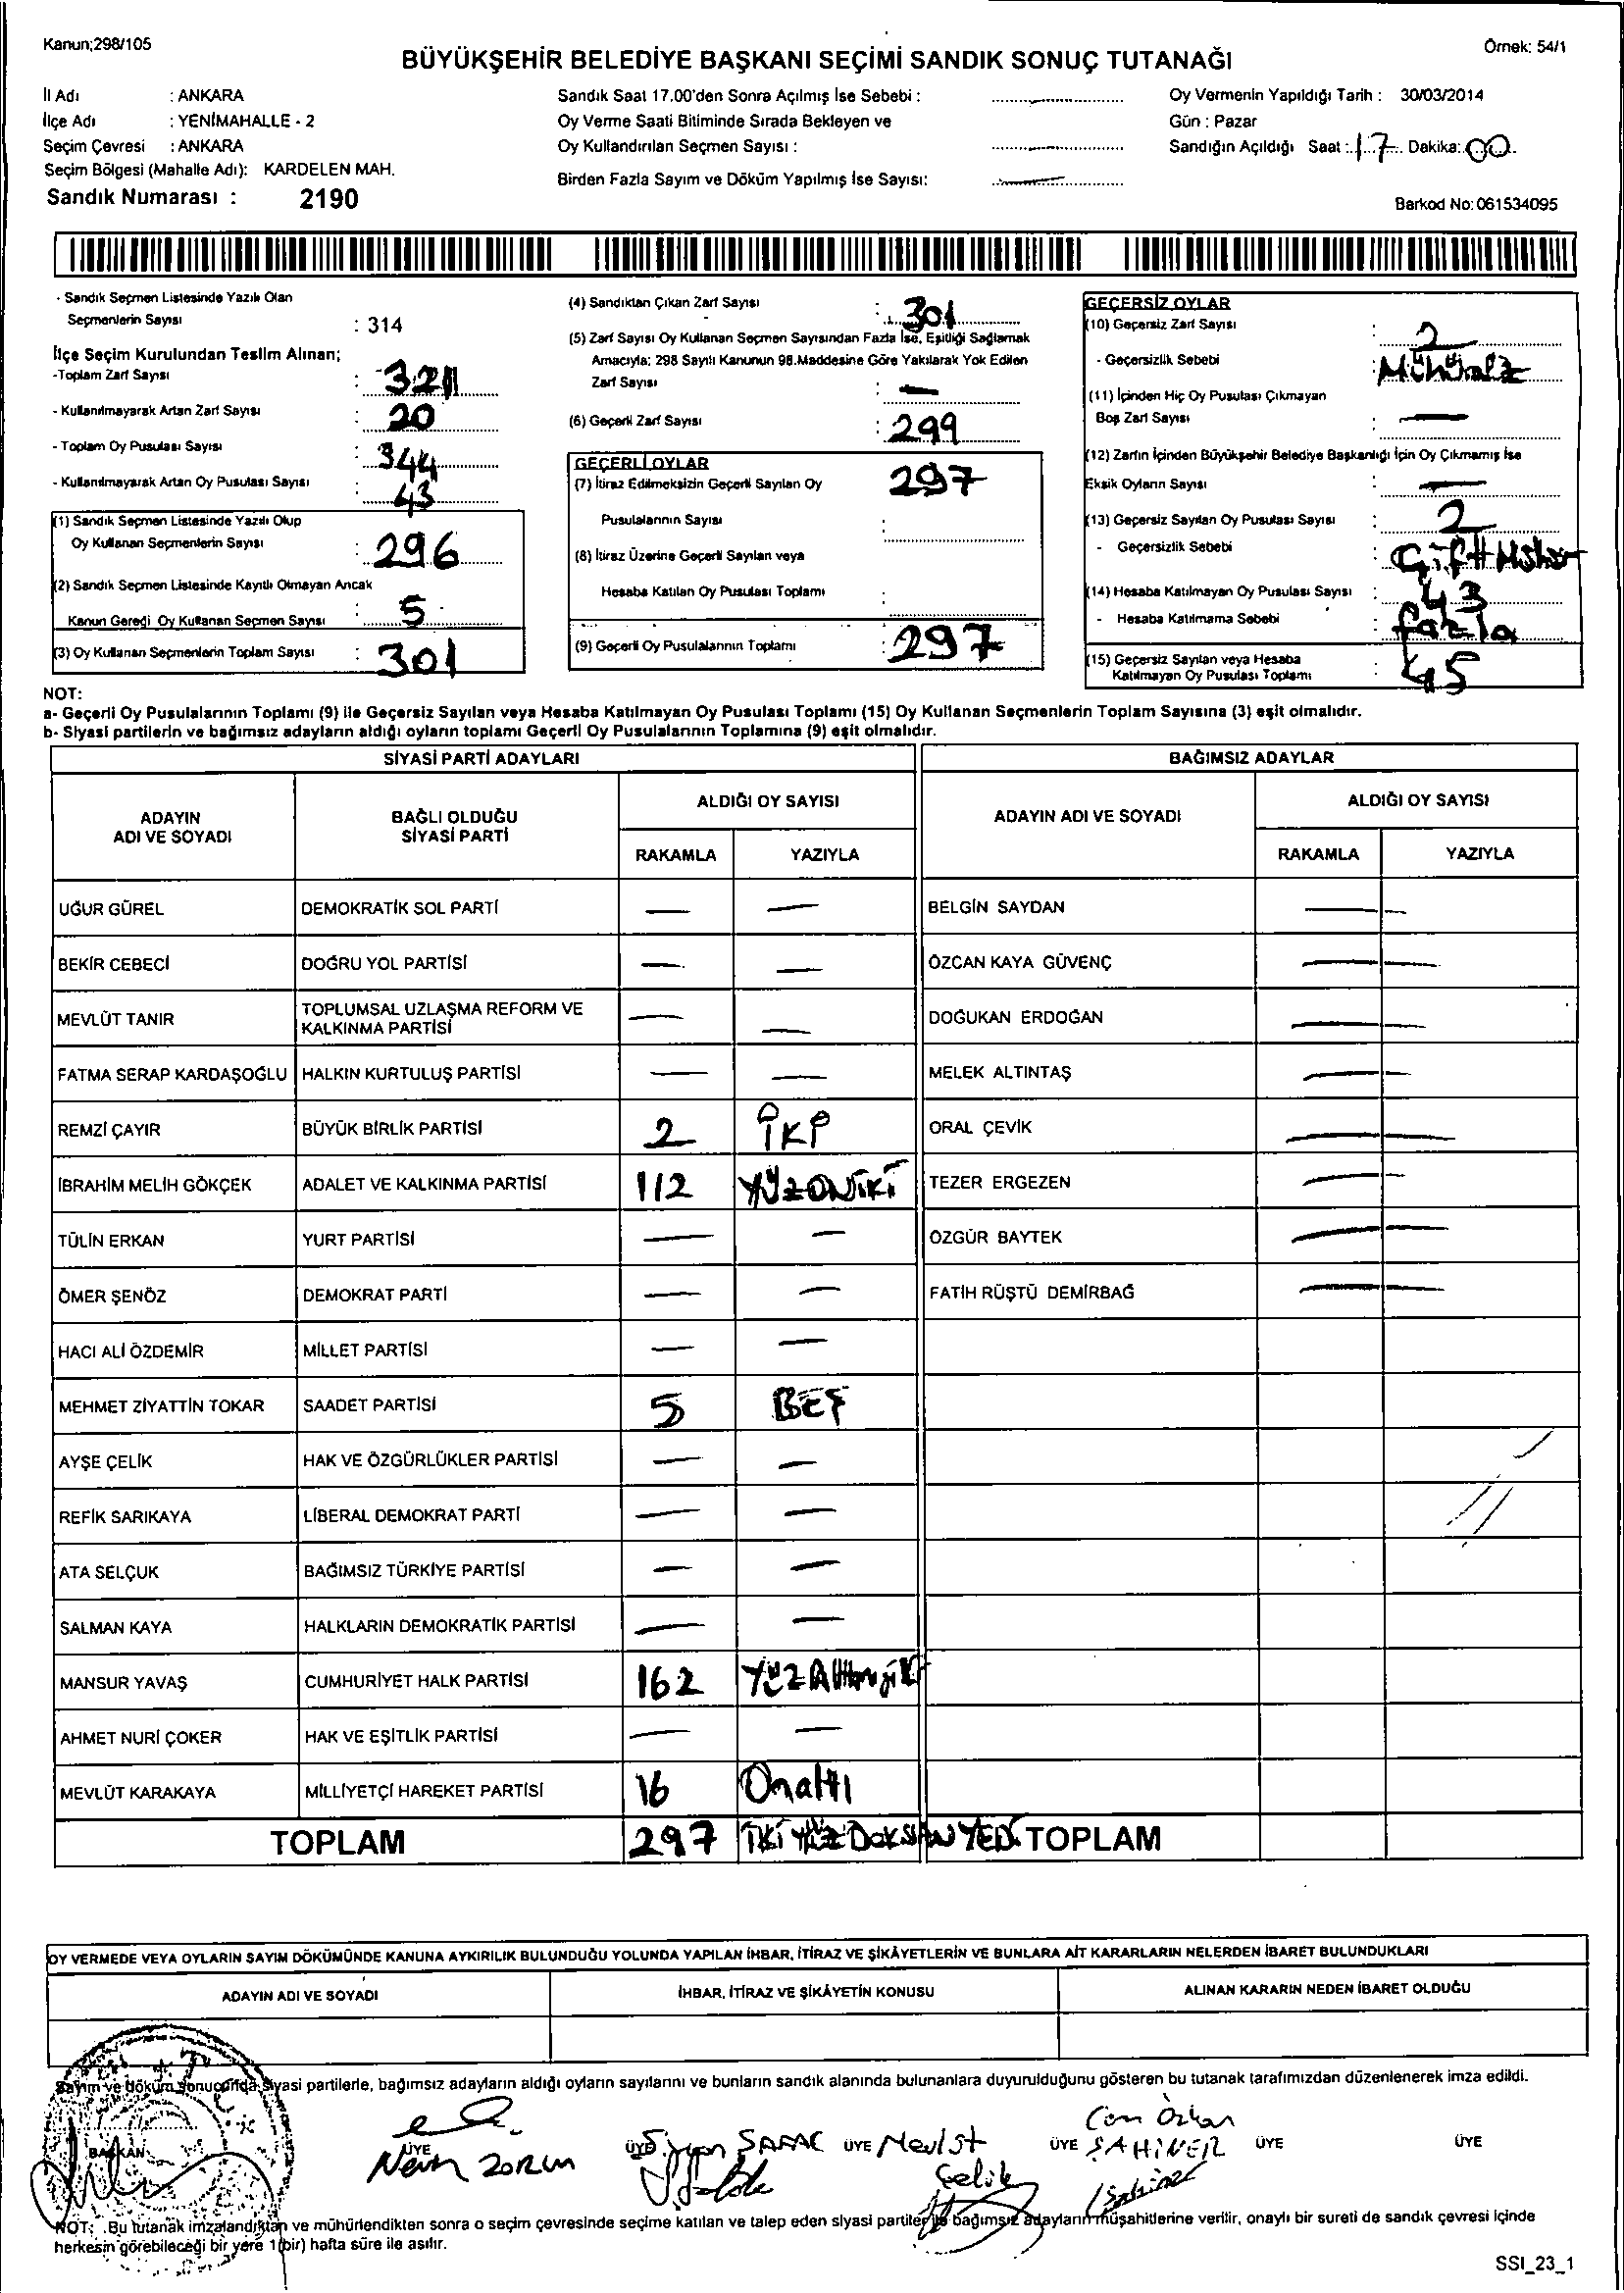 Kanun;298/105
Örnek: 54/1
BÜYÜKŞEHİR BELEDİYE BAŞKANI SEÇİMİ SANDIK SONUÇ TUTANAĞI
İl Adı : ANKARA
İlçe Adı : YENİMAHALLE - 2
Seçim Çevresi : ANKARA
Seçim Bölgesi (Mahalle Adı): KARDELEN MAH.
Sandık Numarası : 2190
Sandık Saat 17.00'den Sonra Açılmış İse Sebebi :
Oy Verme Saati Bitiminde Sırada Bekleyen ve
Oy Kullandırılan Seçmen Sayısı :
Birden Fazla Sayım ve Döküm Yapılmış İse Sayısı:
Oy Vermenin Yapıldığı Tarih : 30/03/2014
Gün : Pazar
Sandığın Açıldığı Saat : 17 Dakika: 00
Barkod No: 061534095
- Sandık Seçmen Listesinde Yazılı Olan
Seçmenlerin Sayısı : 314
İlçe Seçim Kurulundan Teslim Alınan;
-Toplam Zarf Sayısı : 321
- Kullanılmayarak Artan Zarf Sayısı : 20
- Toplam Oy Pusulası Sayısı : 344
- Kullanılmayarak Artan Oy Pusulası Sayısı : 43
(1) Sandık Seçmen Listesinde Yazılı Olup
Oy Kullanan Seçmenlerin Sayısı : 296
(2) Sandık Seçmen Listesinde Kayıtlı Olmayan Ancak
Kanun Gereği Oy Kullanan Seçmen Sayısı : 5
(3) Oy Kullanan Seçmenlerin Toplam Sayısı : 301
(4) Sandıktan Çıkan Zarf Sayısı : 301
(5) Zarf Sayısı Oy Kullanan Seçmen Sayısından Fazla İse, Eşitliği Sağlamak
Amacıyla; 298 Sayılı Kanunun 98.Maddesine Göre Yakılarak Yok Edilen
Zarf Sayısı : —
(6) Geçerli Zarf Sayısı : 299
GEÇERLİ OYLAR
(7) İtiraz Edilmeksizin Geçerli Sayılan Oy 297
Pusulalarının Sayısı :
(8) İtiraz Üzerine Geçerli Sayılan veya
Hesaba Katılan Oy Pusulası Toplamı :
(9) Geçerli Oy Pusulalarının Toplamı : 297
GEÇERSİZ OYLAR
(10) Geçersiz Zarf Sayısı : 2
- Geçersizlik Sebebi : Mühürsüz
(11) İçinden Hiç Oy Pusulası Çıkmayan
Boş Zarf Sayısı : —
(12) Zarfın İçinden Büyükşehir Belediye Başkanlığı İçin Oy Çıkmamış İse
Eksik Oyların Sayısı : —
(13) Geçersiz Sayılan Oy Pusulası Sayısı : 2
- Geçersizlik Sebebi : Çift Mühür
(14) Hesaba Katılmayan Oy Pusulası Sayısı : 43
- Hesaba Katılmama Sebebi : fazla
(15) Geçersiz Sayılan veya Hesaba
Katılmayan Oy Pusulası Toplamı : 45
NOT:
a- Geçerli Oy Pusulalarının Toplamı (9) ile Geçersiz Sayılan veya Hesaba Katılmayan Oy Pusulası Toplamı (15) Oy Kullanan Seçmenlerin Toplam Sayısına (3) eşit olmalıdır.
b- Siyasi partilerin ve bağımsız adayların aldığı oyların toplamı Geçerli Oy Pusulalarının Toplamına (9) eşit olmalıdır.
SİYASİ PARTİ ADAYLARI BAĞIMSIZ ADAYLAR
ADAYIN
ADI VE SOYADI
BAĞLI OLDUĞU
SİYASİ PARTİ
ALDIĞI OY SAYISI
RAKAMLA YAZIYLA
ADAYIN ADI VE SOYADI
ALDIĞI OY SAYISI
RAKAMLA YAZIYLA
UĞUR GÜREL DEMOKRATİK SOL PARTİ — — BELGİN SAYDAN — —
BEKİR CEBECİ DOĞRU YOL PARTİSİ — — ÖZCAN KAYA GÜVENÇ — —
MEVLÜT TANIR TOPLUMSAL UZLAŞMA REFORM VE
KALKINMA PARTİSİ — — DOĞUKAN ERDOĞAN — —
FATMA SERAP KARDAŞOĞLU HALKIN KURTULUŞ PARTİSİ — — MELEK ALTINTAŞ — —
REMZİ ÇAYIR BÜYÜK BİRLİK PARTİSİ 2 İKİ ORAL ÇEVİK — —
İBRAHİM MELİH GÖKÇEK ADALET VE KALKINMA PARTİSİ 112 YÜZONİKİ TEZER ERGEZEN — —
TÜLİN ERKAN YURT PARTİSİ — — ÖZGÜR BAYTEK — —
ÖMER ŞENÖZ DEMOKRAT PARTİ — — FATİH RÜŞTÜ DEMİRBAĞ — —
HACI ALİ ÖZDEMİR MİLLET PARTİSİ — —
MEHMET ZİYATTİN TOKAR SAADET PARTİSİ 5 BEŞ
AYŞE ÇELİK HAK VE ÖZGÜRLÜKLER PARTİSİ — —
REFİK SARIKAYA LİBERAL DEMOKRAT PARTİ — —
ATA SELÇUK BAĞIMSIZ TÜRKİYE PARTİSİ — —
SALMAN KAYA HALKLARIN DEMOKRATİK PARTİSİ — —
MANSUR YAVAŞ CUMHURİYET HALK PARTİSİ 162 YÜZAltmışİKİ
AHMET NURİ ÇOKER HAK VE EŞİTLİK PARTİSİ — —
MEVLÜT KARAKAYA MİLLİYETÇİ HAREKET PARTİSİ 16 Onaltı
TOPLAM 297 İKİ YÜZ DOKSAN YEDİ TOPLAM
OY VERMEDE VEYA OYLARIN SAYIM DÖKÜMÜNDE KANUNA AYKIRILIK BULUNDUĞU YOLUNDA YAPILAN İHBAR, İTİRAZ VE ŞİKÂYETLERİN VE BUNLARA AİT KARARLARIN NELERDEN İBARET BULUNDUKLARI
ADAYIN ADI VE SOYADI İHBAR, İTİRAZ VE ŞİKÂYETİN KONUSU ALINAN KARARIN NEDEN İBARET OLDUĞU
Sayım ve döküm sonucunda siyasi partilerle, bağımsız adayların aldığı oyların sayılarını ve bunların sandık alanında bulunanlara duyurulduğunu gösteren bu tutanak tarafımızdan düzenlenerek imza edildi.
Can Özkan
BAŞKAN ÜYE ÜYE SARAÇ ÜYE Mevlüt ÜYE ŞAHİNER ÜYE ÜYE
Çelik Şahiner
NOT: Bu tutanak imzalandıktan ve mühürlendikten sonra o seçim çevresinde seçime katılan ve talep eden siyasi partiler ile bağımsız adayların müşahitlerine verilir, onaylı bir sureti de sandık çevresi içinde
herkesin görebileceği bir yere 1 (bir) hafta süre ile asılır.
SSI_23_1